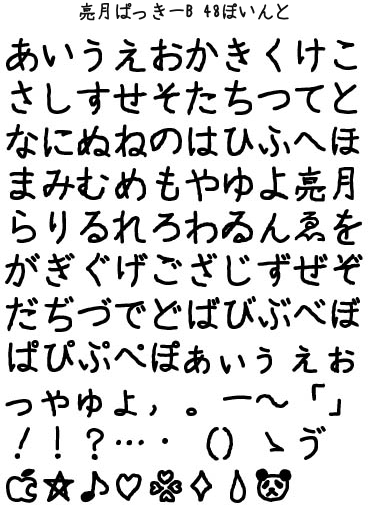 亮月ぱっきーB 48ぽいんと
あいうえおかきくけこ
さしすせそたちつてと
なにぬねのはひふへほ
まみむめもやゆよ亮月
らりるれろわゐんゑを
がぎぐげござじずぜぞ
だぢづでどばびぶべぼ
ぱぴぷぺぽぁぃぅぇぉ
っゃゅょ，。ー～「」
！！？…・ ()ゝゔ
☆♪♡✧